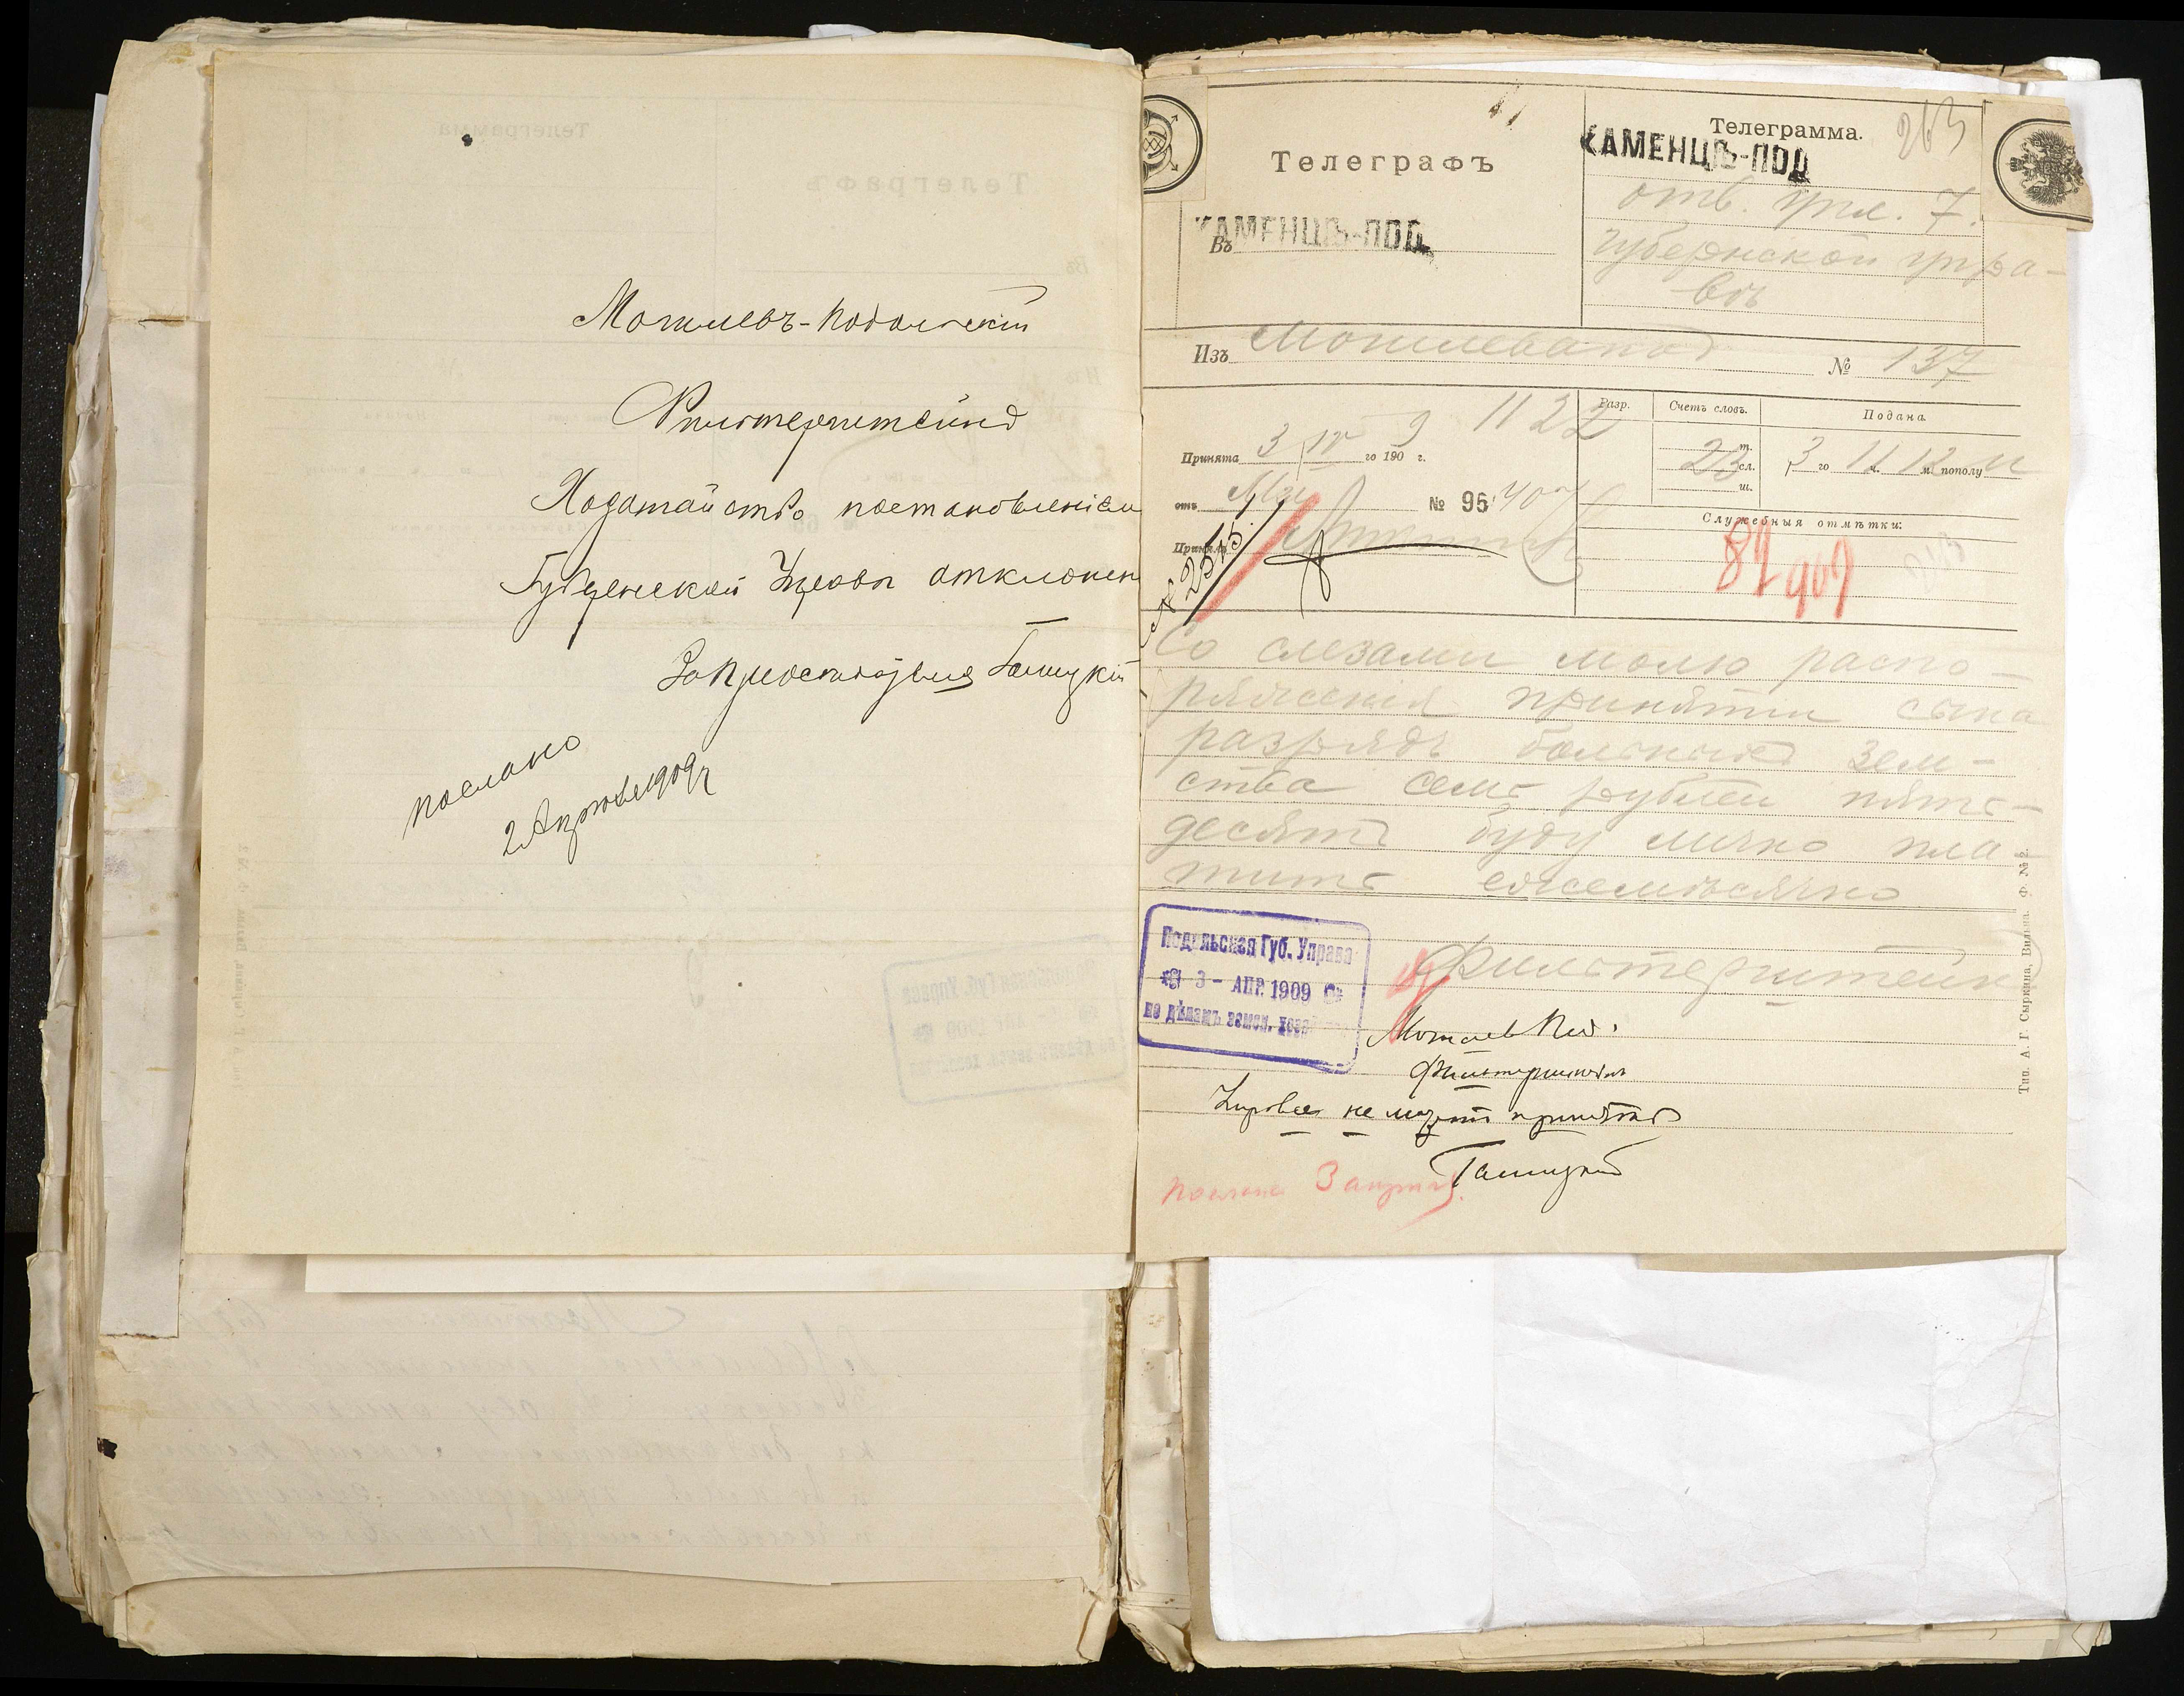 Могилевъ-Подольскій
Фильтерштейнъ
Ходатайство постановленіем
Губернской Управы отклонен
За Председателя Галицкій
послано
2 Апреля 1909 г
263
Телеграфъ
Телеграмма.
КАМЕНЦЪ-ПОД
отв. упл. 7.
Въ КАМЕНЦЪ-ПОД.
губернской упра-
вѣ
Изъ Могилевапод № 137
Разр.
Счетъ словъ.
Подана
Принята 3 IV го 1909 г. 1122
23 сл.
т.
ш.
3 го 11 ч. 12 м. пополу н
отъ Мги № 96
Служебныя отмѣтки:
Принялъ
№ 2515.
82
909
Со слезами молю распо-
ряженія принятии сына
разрядъ больныхъ зем-
ства семь рублей пять-
десятъ буду лично пла-
тить ежемѣсячно
Фильтерштейн
Подольская Губ. Управа
3 - АПР. 1909
по дѣламъ земск. хозяйства
Могилев Под.
Фильтерштейнъ
Управа не можетъ принять
Галицкій
послана 3 апреля.
Тип. А. Г. Сыркина, Вильна. Ф. № 2.